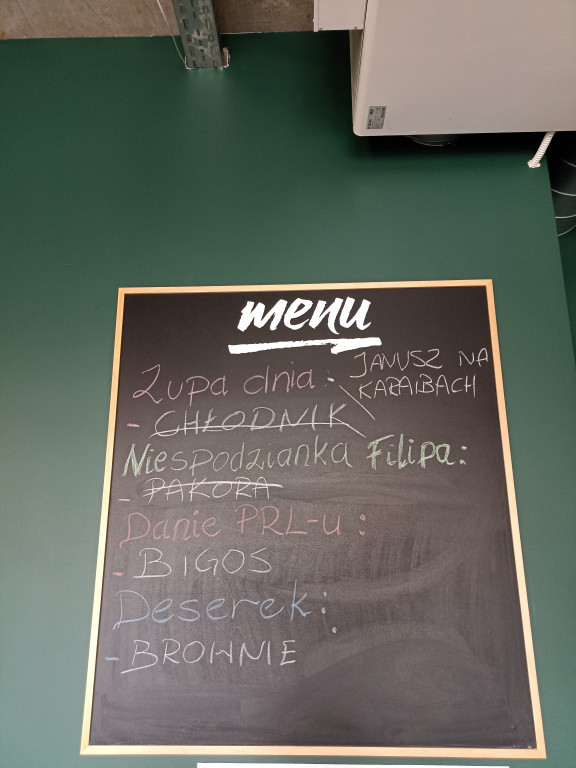 menu
Zupa dnia: JANUSZ NA
KARAIBACH
- CHŁODNIK
Niespodzianka Filipa:
- PAKORA
Danie PRL-u:
- BIGOS
Deserek:
- BROWNIE